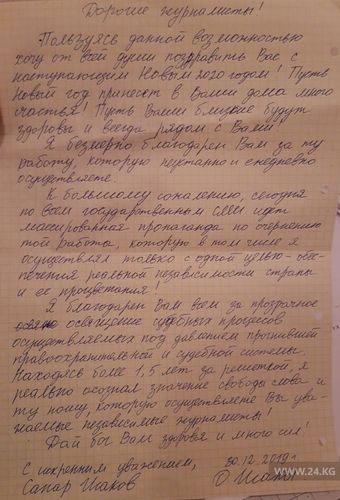 Дорогие журналисты!
Пользуясь данной возможностью
хочу от всей души поздравить Вас с
наступающим Новым 2020 годом! Пусть
Новый год принесет в Ваши дома много
счастья! Пусть Ваши близкие будут
здоровы и всегда рядом с Вами!
Я безмерно благодарен Вам за ту
работу, которую неустанно и ежедневно
осуществляете.
К большому сожалению, сегодня
по всем государственным СМИ идет
массированная пропаганда по очернению
той работы, которую в том числе я
осуществлял только с одной целью - обес-
печения реальной независимости страны
и ее процветания!
Я благодарен Вам всем за прозрачное
освещение судебных процессов
осуществляемых под давлением прогнившей
правоохранительной и судебной системы.
Находясь более 1,5 лет за решеткой, я
реально осознал значение свободы слова и
ту ношу, которую осуществляете Вы ува-
жаемые независимые журналисты!
Дай бог Вам здоровья и много сил!
С искренним уважением, 30.12.2019г.
Сапар Исаков
WWW.24.KG